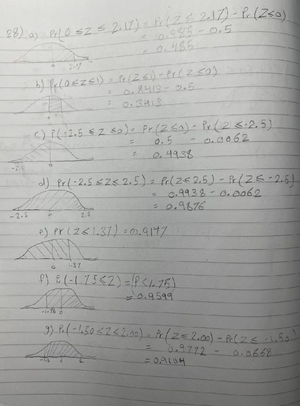 28) a) Pr(0 ≤ Z ≤ 2.17) = Pr(Z ≤ 2.17) - Pr(Z ≤ 0)
= 0.985 - 0.5
= 0.485
0 2.17
b) Pr(0 ≤ Z ≤ 1) = Pr(Z ≤ 1) - Pr(Z ≤ 0)
= 0.8413 - 0.5
= 0.3413
c) P(-2.5 ≤ Z ≤ 0) = Pr(Z ≤ 0) - Pr(Z ≤ -2.5)
= 0.5 - 0.0062
= 0.4938
-2.5 0
d) Pr(-2.5 ≤ Z ≤ 2.5) = Pr(Z ≤ 2.5) - Pr(Z ≤ -2.5)
= 0.9938 - 0.0062
= 0.9876
-2.5 0 2.5
e) Pr(Z ≤ 1.37) = 0.9147
0 1.37
f) (-1.75 ≤ Z) = P(≤ 1.75)
= 0.9599
-1.75 0
g) Pr(-1.50 ≤ Z ≤ 2.00) = Pr(Z ≤ 2.00) - Pr(Z ≤ -1.50)
= 0.9772 - 0.0668
= 0.9104